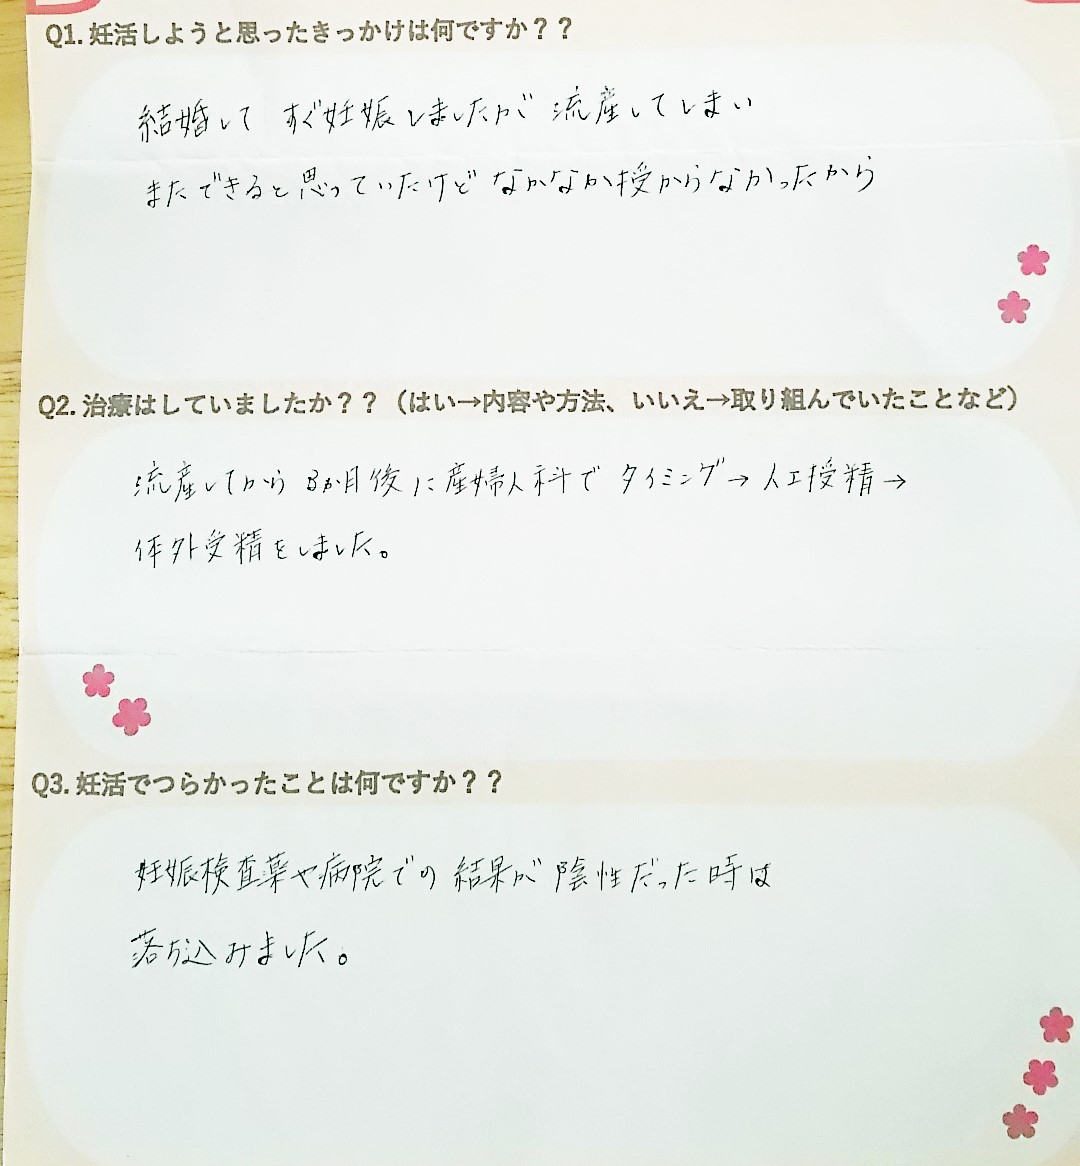 Q1. 妊活しようと思ったきっかけは何ですか？？
結婚して すぐ妊娠しましたが 流産してしまい
またできると思っていたけど なかなか授からなかったから
Q2. 治療はしていましたか？？（はい→内容や方法、いいえ→取り組んでいたことなど）
流産してから 3か月後に産婦人科で タイミング→人工授精→
体外受精をしました。
Q3. 妊活でつらかったことは何ですか？？
妊娠検査薬や病院での 結果が 陰性だった時は
落ち込みました。